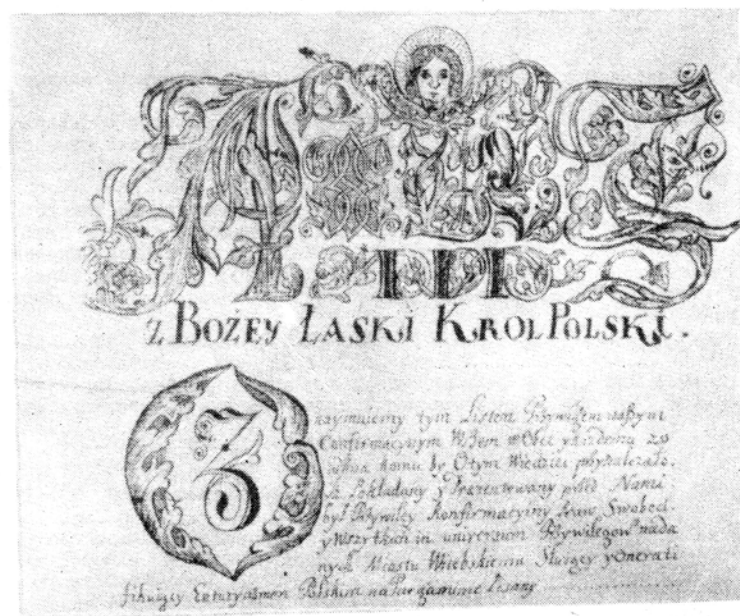 III
Z BOŻEY ŁASKI KROL POLSKI.
Oznaymuiemy tym Listem Przywilem naszym
Confirmacyinym Wszem w Obec y każdemu zo
sobna komu by O tym Wiedzieć przynależało.
Iż Pokładany y Prezentowany przed Nami
był Przywiley Konfirmacyiny Praw Swobod.
y Wszytkich in universum Przywilegow nada
nych Miastu Witebskiemu Służący y one rati
fikuiący Polskim na Pargaminie Pisany